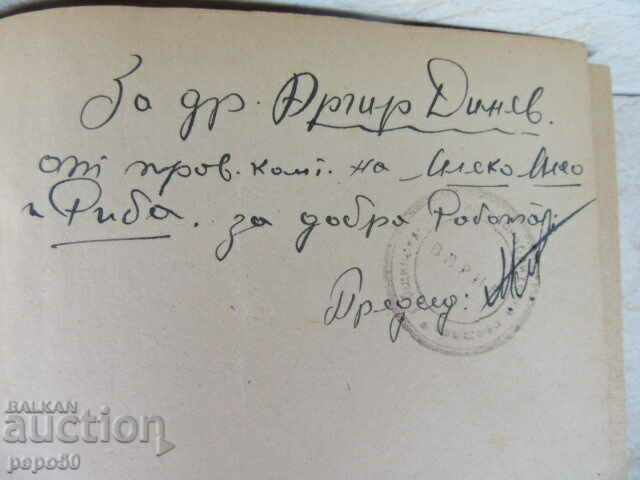 За др. Аргир Динев.
от пров. ком. на Млеко Месо
и Риба. за добра работа.
Председ:
ВАРНА
BALKAN
auction
papo50